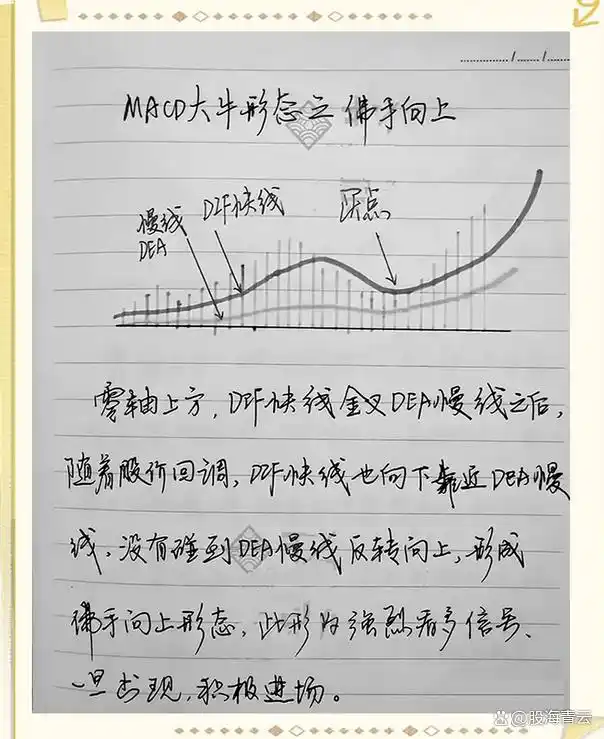 MACD大牛形态之佛手向上
慢线
DEA
DIF快线
买点
零轴上方,DIF快线金叉DEA慢线之后,
随着股价回调,DIF快线也向下靠近DEA慢
线,没有碰到DEA慢线反转向上,形成
佛手向上形态,此形为强烈看多信号、
一旦出现,积极进场。
@股海青云